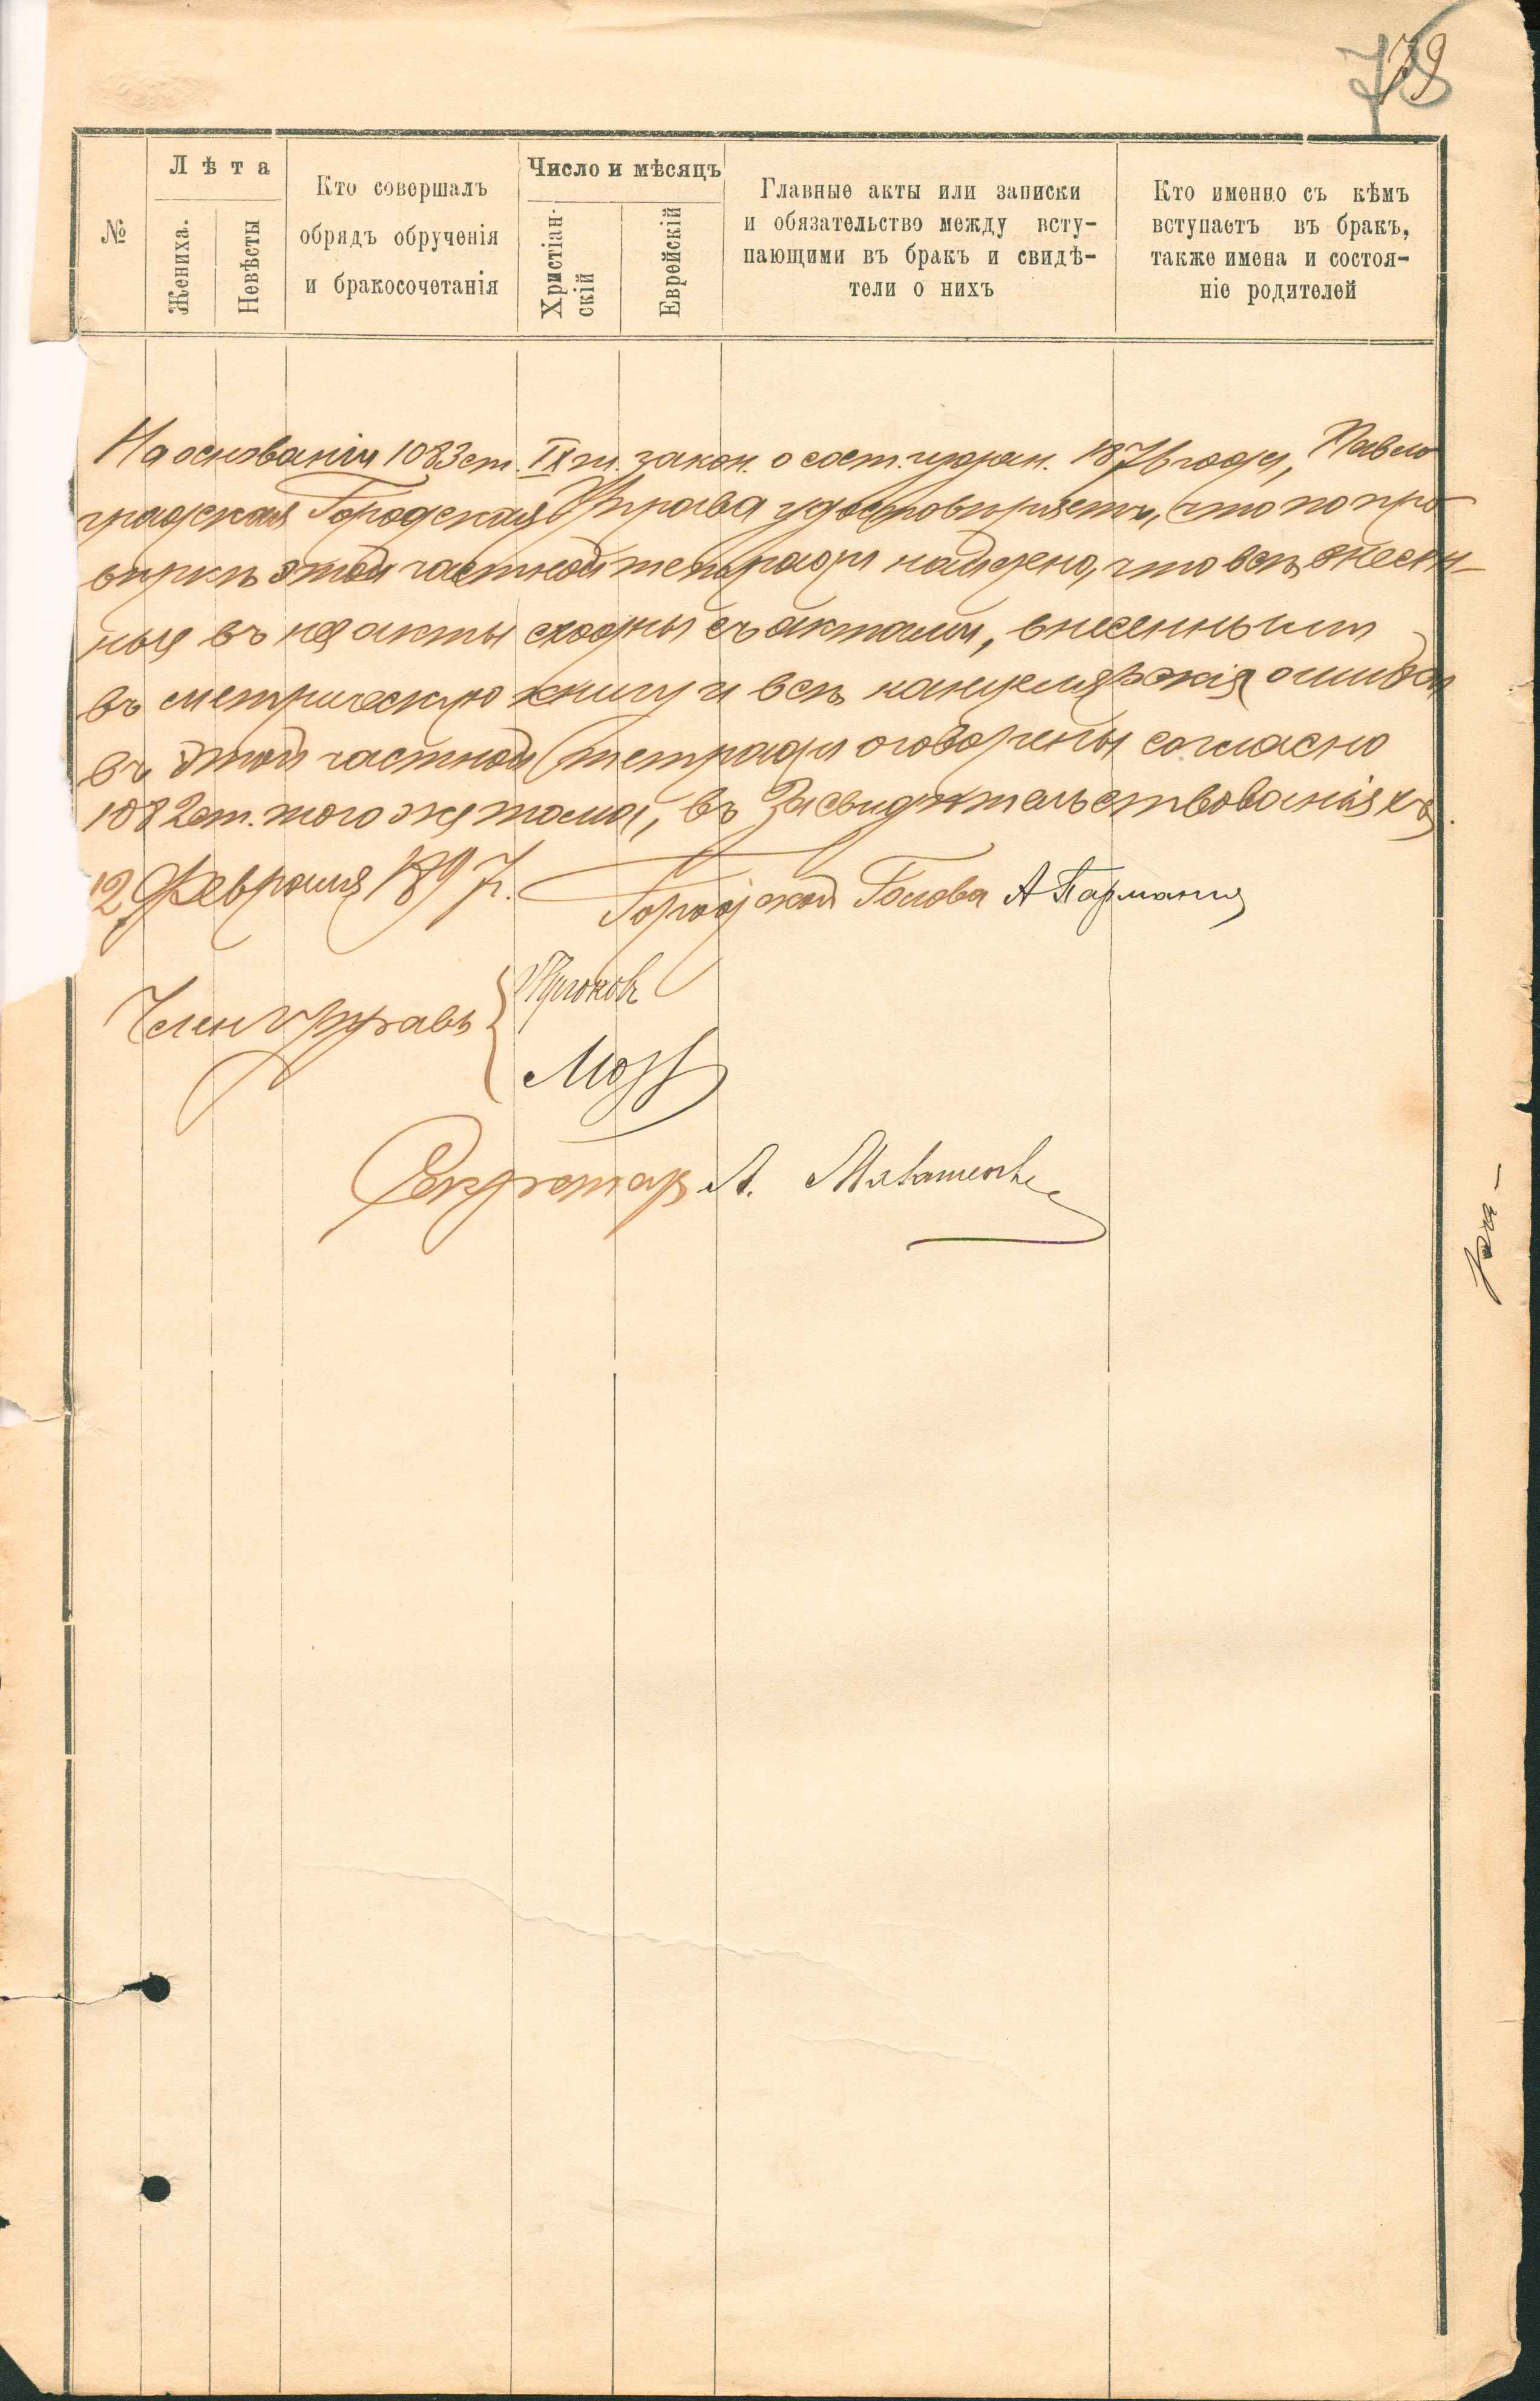 79
№
Лѣта
Жениха.
Невѣсты
Кто совершалъ
обрядъ обрученія
и бракосочетанія
Число и мѣсяцъ
Христіан-
скій
Еврейскій
Главные акты или записки
и обязательство между всту-
пающими въ бракъ и свидѣ-
тели о нихъ
Кто именно съ кѣмъ
вступаетъ въ бракъ,
также имена и состоя-
ніе родителей
На основаніи 1083 ст. IX т. закон. о сост. гражд. 1876 года, Павло
градская Городская Управа удостовѣряетъ, что по про
вѣркѣ этой частной тетради найдено, что всѣ внесен-
ные въ нея акты сходны съ актами, внесенными
въ метрическую книгу и всѣ канцелярскія ошибки
въ этой частной тетради оговорены согласно
1082 ст. того же тома, въ засвидѣтельствованіяхъ.
12 Февраля 1897 г. Городской Голова А
Член Управы
Крюковъ
Секретарь А.